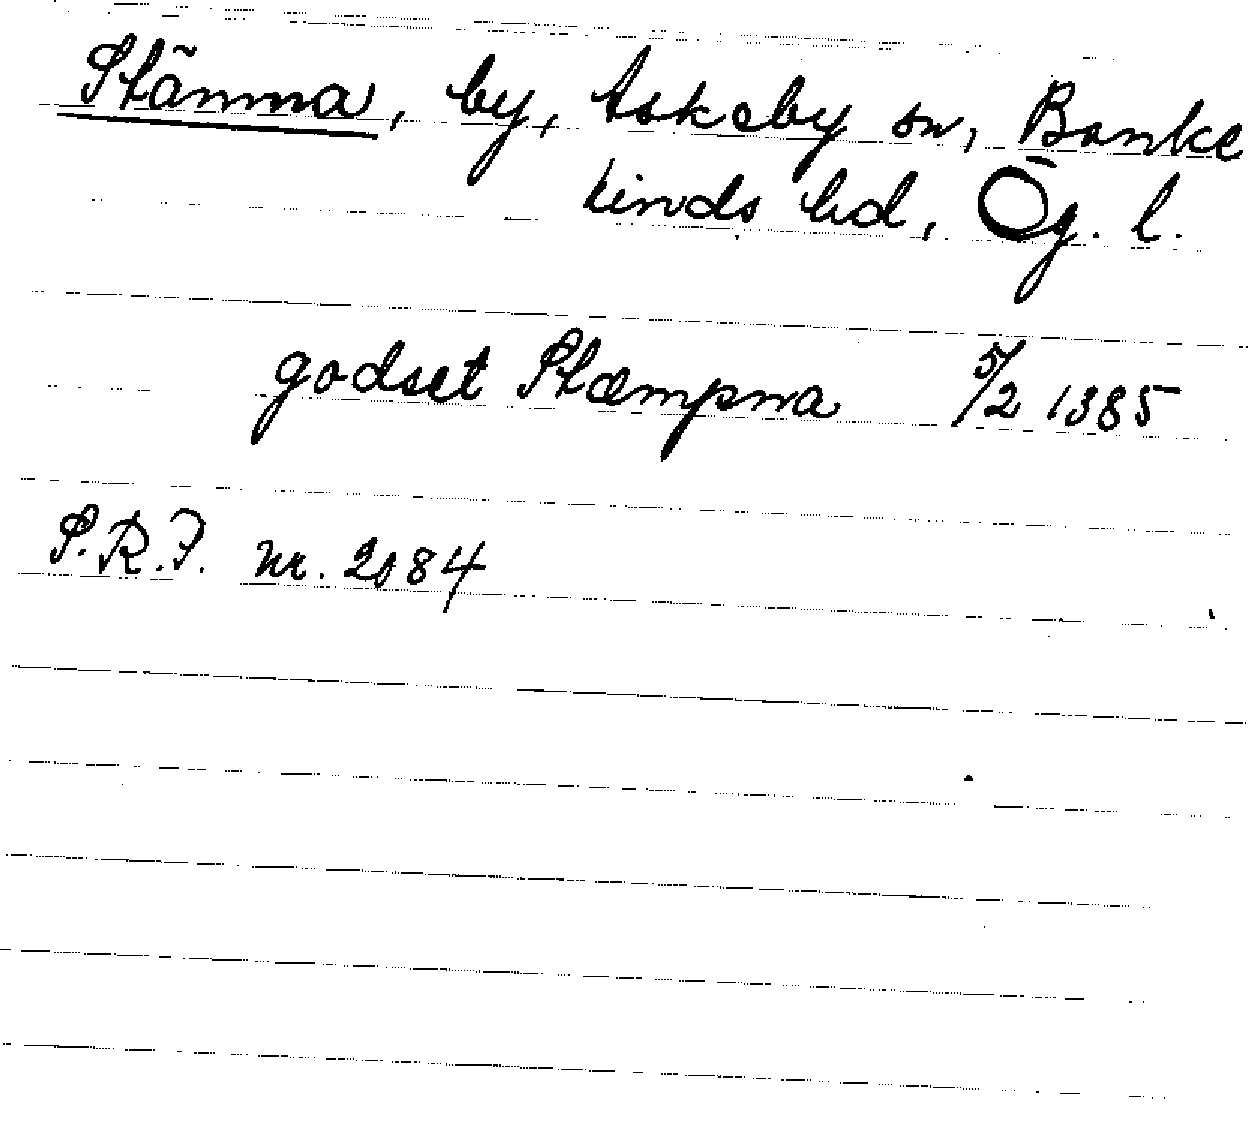 Stämma, by, Askeby sn, Banke
kinds hd, Ög. l.
godset Stæmpna 5/2 1385
S.R.P. nr. 2084